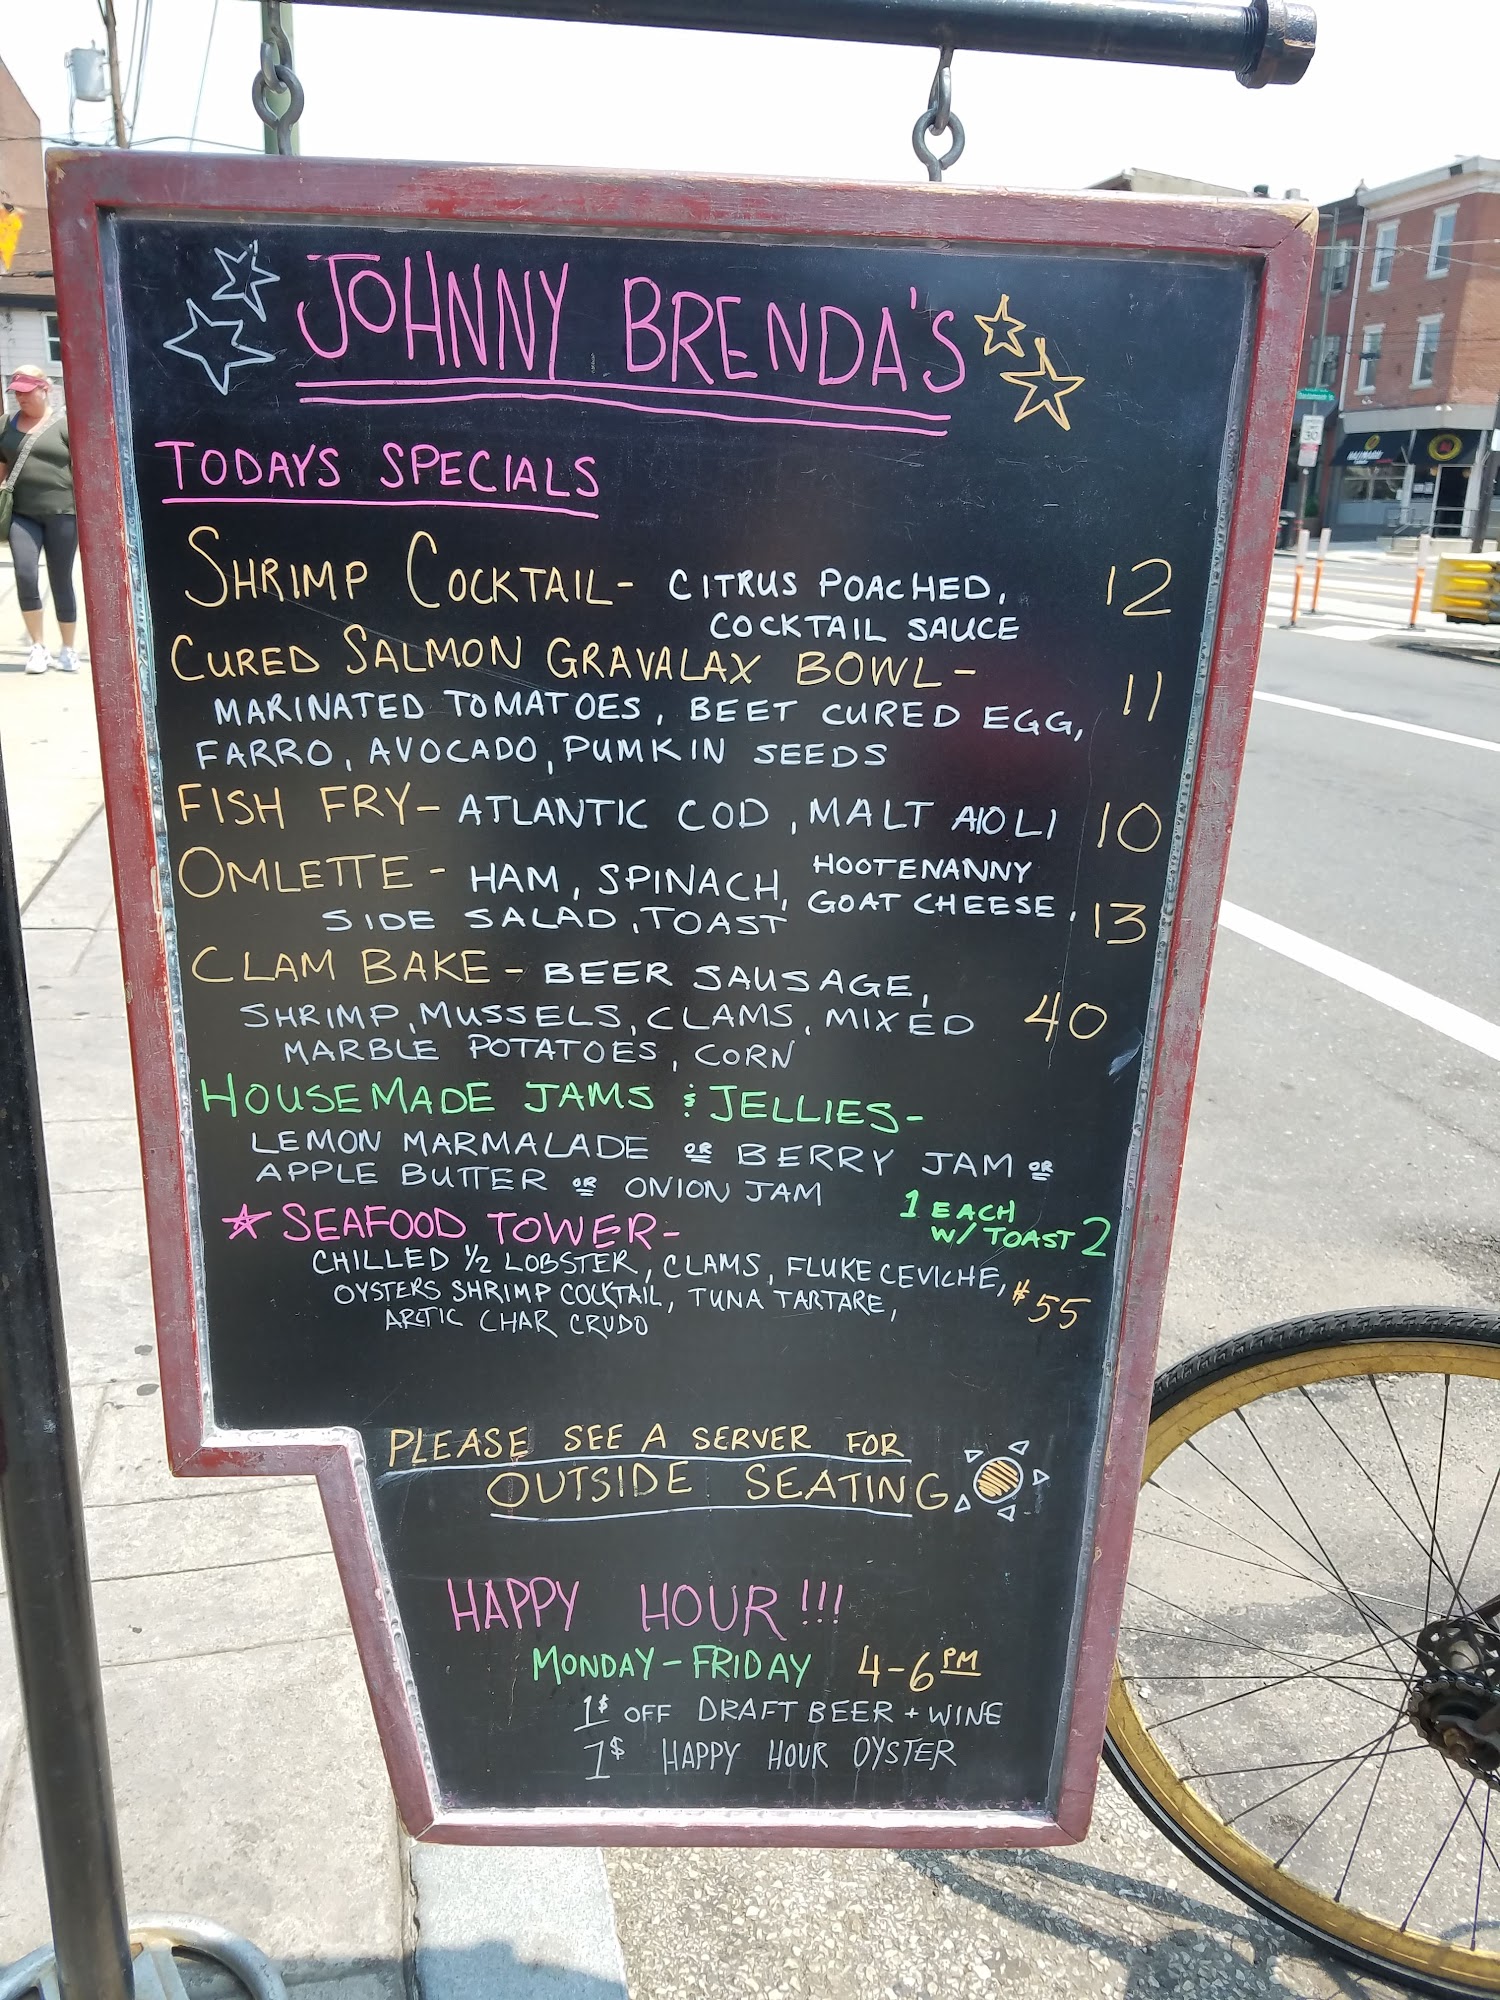 JOHNNY BRENDA'S
TODAYS SPECIALS
SHRIMP COCKTAIL - CITRUS POACHED, 12
COCKTAIL SAUCE
CURED SALMON GRAVALAX BOWL -
MARINATED TOMATOES, BEET CURED EGG, 11
FARRO, AVOCADO, PUMKIN SEEDS
FISH FRY - ATLANTIC COD, MALT AIOLI 10
OMLETTE - HAM, SPINACH, HOOTENANNY
GOAT CHEESE,
SIDE SALAD, TOAST 13
CLAM BAKE - BEER SAUSAGE,
SHRIMP, MUSSELS, CLAMS, MIXED 40
MARBLE POTATOES, CORN
HOUSEMADE JAMS & JELLIES -
LEMON MARMALADE OR BERRY JAM OR
APPLE BUTTER OR ONION JAM
1 EACH
W/ TOAST 2
SEAFOOD TOWER -
CHILLED 1/2 LOBSTER, CLAMS, FLUKE CEVICHE,
OYSTERS SHRIMP COCKTAIL, TUNA TARTARE, $55
ARCTIC CHAR CRUDO
PLEASE SEE A SERVER FOR
OUTSIDE SEATING
HAPPY HOUR!!!
MONDAY-FRIDAY 4-6PM
1$ OFF DRAFT BEER + WINE
1$ HAPPY HOUR OYSTER
30